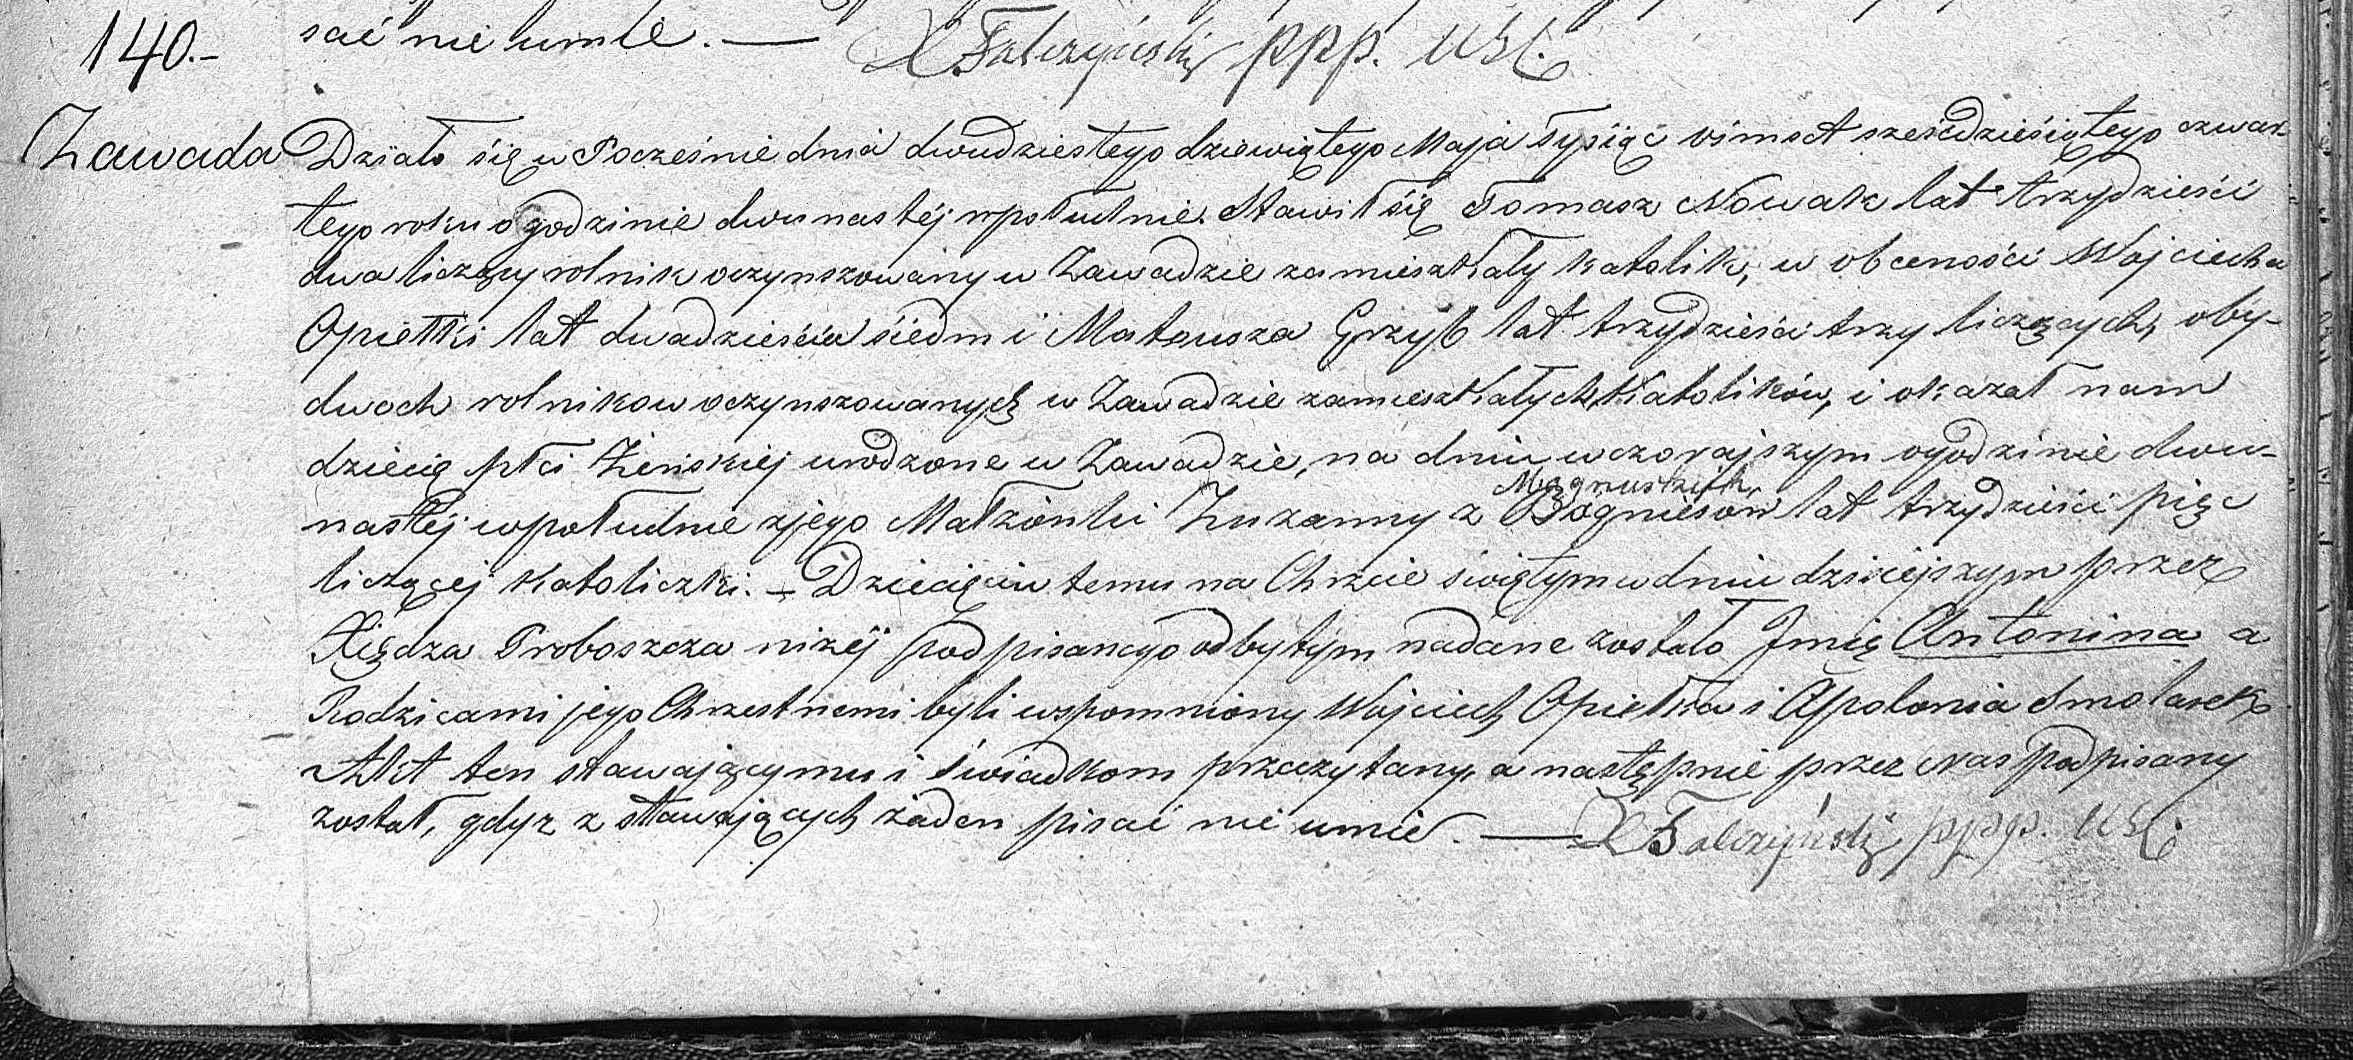 140.-
sać nie umie. — X Falczyński ppp. USC.
Zawada
Działo się w Poczesnie dnia dwudziestego dziewiątego Maja tysiąc ośmset sześcdziesiątego czwar-
tego roku o godzinie dwunastéj w południe. Stawił się Tomasz Nowak lat trzydzieści
dwa liczący rolnik oczynszowany w Zawadzie zamieszkały katolik, w obecności Wojciecha
Opiełki lat dwadzieścia siedm i Mateusza Grzyb lat trzydzieści trzy liczących, oby-
dwoch rolnikow oczynszowanych w Zawadzie zamieszkałych, Katolików, i okazał nam
dziecię płci Żeńskiej urodzone w Zawadzie, na dniu wczorajszym o godzinie dwu-
Magnuskich
nastéj w południe z jego Małżonki Zuzanny z Bogniesów lat trzydzieści pięc
liczącej Katoliczki. — Dziecięciu temu na Chrzcie świętym w dniu dzisiejszym przez
Xiędza Proboszcza niżéj podpisanego odbytym nadane zostało Imię Antonina a
Rodzicami jego Chrzestnemi byli wspomniony Wojciech Opiełka i Apolonia Smolarek.
Akt ten stawającymu i świadkom przeczytany, a następnie przez nas podpisany
został, gdyż z stawających żaden pisać nie umie. — X Falczyński ppp. USC.